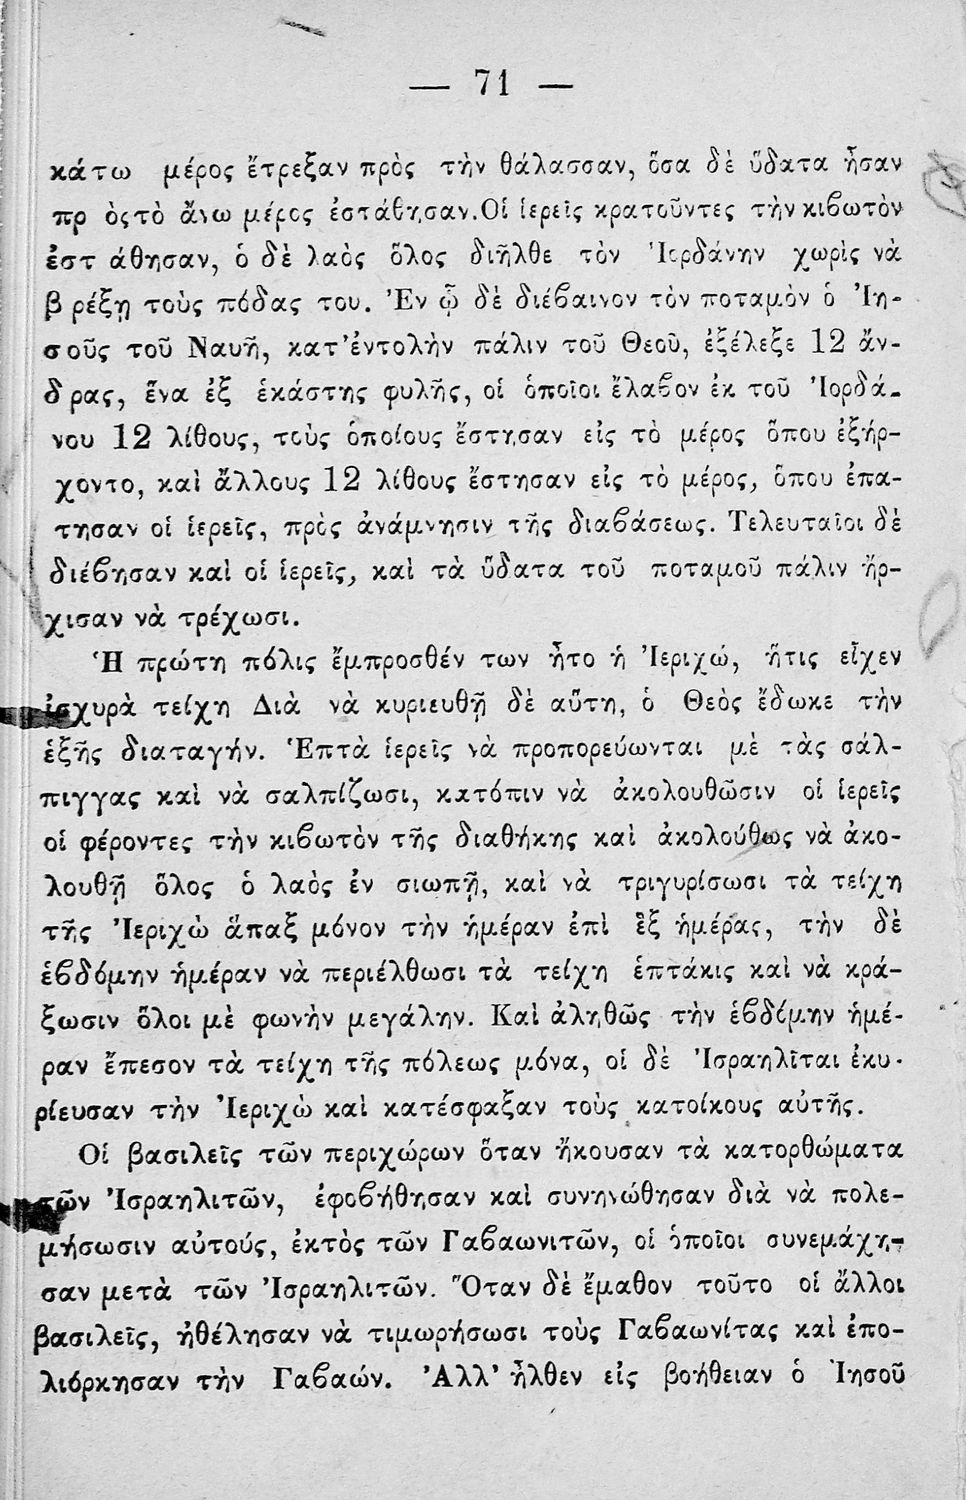 — 71 —
κάτω μέρος ἔτρεξαν πρὸς τὴν θάλασσαν, ὅσα δὲ ὕδατα ἦσαν
πρ ὸς τὸ ἄνω μέρος ἐστάθησαν. Οἱ ἱερεῖς κρατοῦντες τὴν κιβωτὸν
ἐστ άθησαν, ὁ δὲ λαὸς ὅλος διῆλθε τὸν Ἰορδάνην χωρὶς νὰ
β ρέξῃ τοὺς πόδας του. Ἐν ᾧ δὲ διέβαινον τὸν ποταμὸν ὁ Ἰη-
σοῦς τοῦ Ναυῆ, κατ' ἐντολὴν πάλιν τοῦ Θεοῦ, ἐξέλεξε 12 ἄν-
δ ρας, ἕνα ἐξ ἑκάστης φυλῆς, οἱ ὁποῖοι ἔλαβον ἐκ τοῦ Ἰορδά-
νου 12 λίθους, τοὺς ὁποίους ἔστησαν εἰς τὸ μέρος ὅπου ἐξήρ-
χοντο, καὶ ἄλλους 12 λίθους ἔστησαν εἰς τὸ μέρος, ὅπου ἐπα-
τησαν οἱ ἱερεῖς, πρὸς ἀνάμνησιν τῆς διαβάσεως. Τελευταῖοι δὲ
διέβησαν καὶ οἱ ἱερεῖς, καὶ τὰ ὕδατα τοῦ ποταμοῦ πάλιν ἤρ-
χισαν νὰ τρέχωσι.
Ἡ πρώτη πόλις ἔμπροσθέν των ἦτο ἡ Ἰεριχώ, ἥτις εἶχεν
ἰσχυρὰ τείχη Διὰ νὰ κυριευθῇ δὲ αὕτη, ὁ Θεὸς ἔδωκε τὴν
ἑξῆς διαταγήν. Ἑπτὰ ἱερεῖς νὰ προπορεύωνται μὲ τὰς σάλ-
πιγγας καὶ νὰ σαλπίζωσι, κατόπιν νὰ ἀκολουθῶσιν οἱ ἱερεῖς
οἱ φέροντες τὴν κιβωτὸν τῆς διαθήκης καὶ ἀκολούθως νὰ ἀκο-
λουθῇ ὅλος ὁ λαὸς ἐν σιωπῇ, καὶ νὰ τριγυρίσωσι τὰ τείχη
τῆς Ἰεριχὼ ἅπαξ μόνον τὴν ἡμέραν ἐπὶ ἓξ ἡμέρας, τὴν δὲ
ἑβδόμην ἡμέραν νὰ περιέλθωσι τὰ τείχη ἑπτάκις καὶ νὰ κρά-
ξωσιν ὅλοι μὲ φωνὴν μεγάλην. Καὶ ἀληθῶς τὴν ἑβδόμην ἡμέ-
ραν ἔπεσον τὰ τείχη τῆς πόλεως μόνα, οἱ δὲ Ἰσραηλῖται ἐκυ-
ρίευσαν τὴν Ἰεριχὼ καὶ κατέσφαξαν τοὺς κατοίκους αὐτῆς.
Οἱ βασιλεῖς τῶν περιχώρων ὅταν ἤκουσαν τὰ κατορθώματα
τῶν Ἰσραηλιτῶν, ἐφοβήθησαν καὶ συνηνώθησαν διὰ νὰ πολε-
μήσωσιν αὐτούς, ἐκτὸς τῶν Γαβαωνιτῶν, οἱ ὁποῖοι συνεμάχη-
σαν μετὰ τῶν Ἰσραηλιτῶν. Ὅταν δὲ ἔμαθον τοῦτο οἱ ἄλλοι
βασιλεῖς, ἠθέλησαν νὰ τιμωρήσωσι τοὺς Γαβαωνίτας καὶ ἐπο-
λιόρκησαν τὴν Γαβαών. Ἀλλ' ἦλθεν εἰς βοήθειαν ὁ Ἰησοῦ